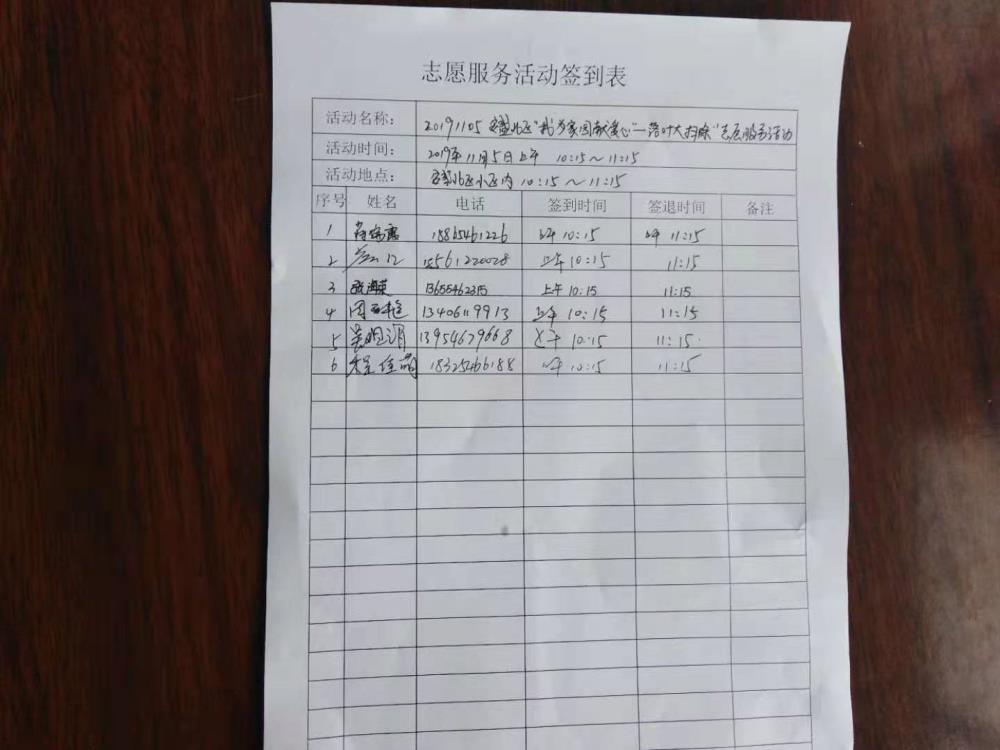 志愿服务活动签到表
活动名称： 20191105 北区"我为家园献爱心"—落叶大扫除"志愿服务活动
活动时间： 2019年11月5日上午 10:15～11:15
活动地点： 北区小区内 10:15～11:15
序号 姓名 电话 签到时间 签退时间 备注
1 18865461226 上午 10:15 上午 11:15
2 15561220028 上午 10:15 11:15
3 13655462315 上午 10:15 11:15
4 13406119913 上午 10:15 11:15
5 13954679668 上午 10:15 11:15
6 程佳 18325466188 上午 10:15 11:15